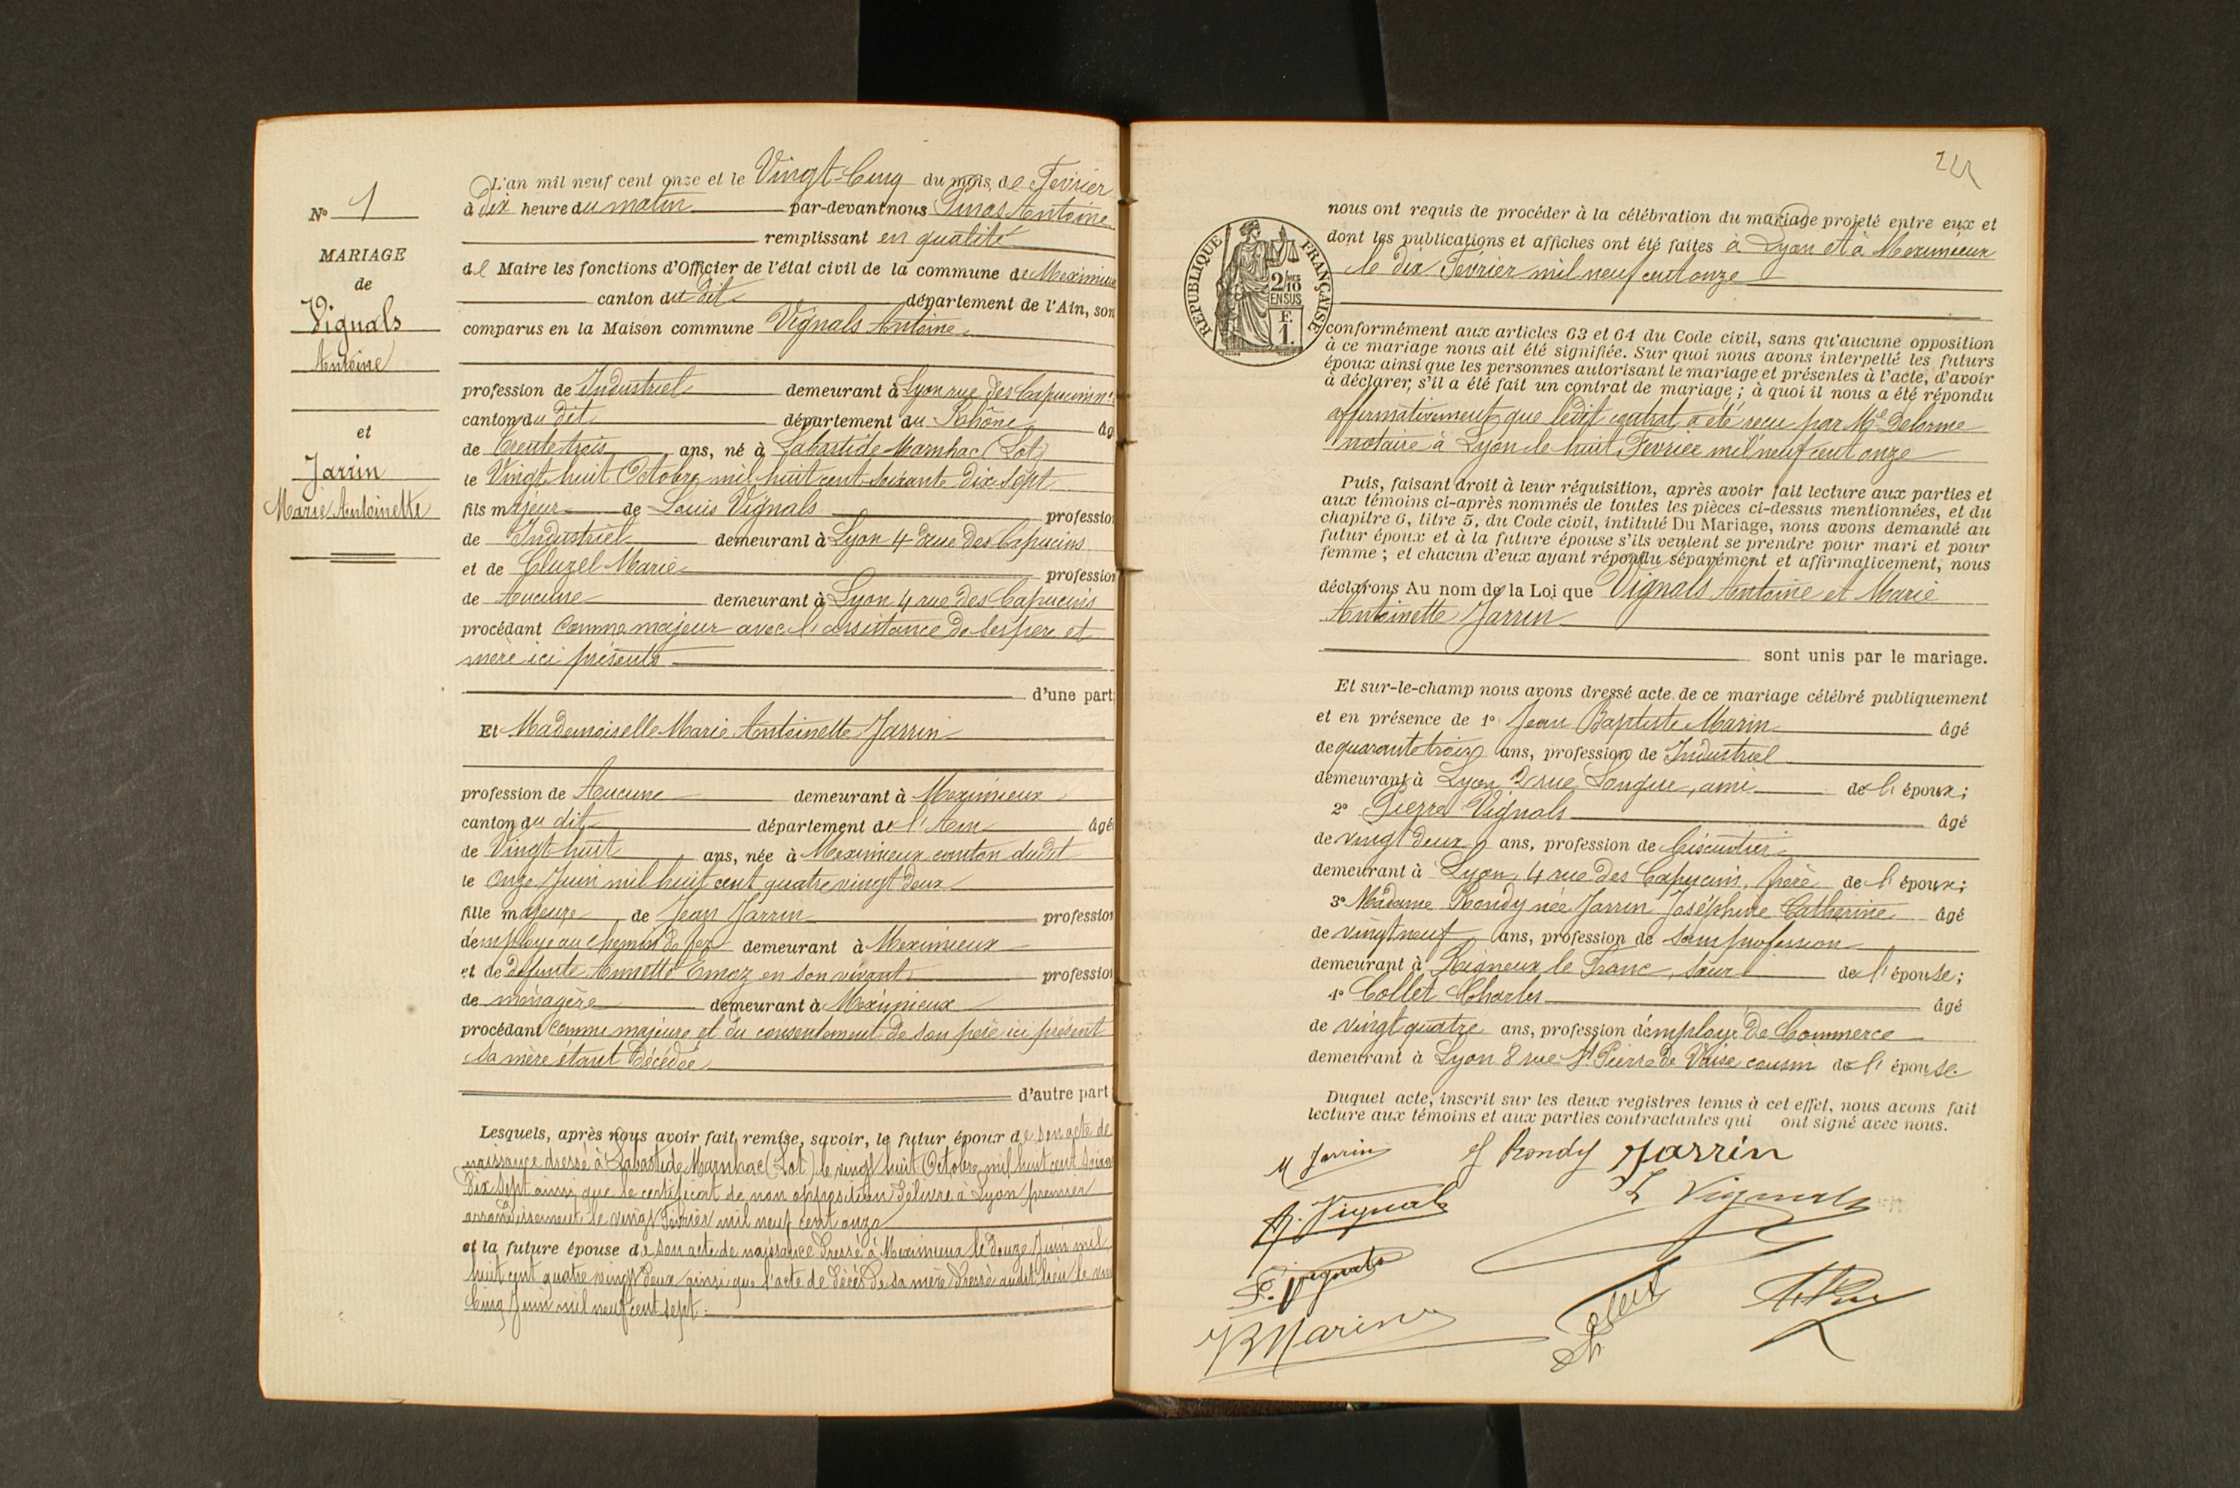 N° 1
MARIAGE
de
Vignals
Antoine
et
Jarrin
Marie Antoinette
L'an mil neuf cent onze et le Vingt-Cinq du mois de Fevrier
à Dix heure du matin par-devant nous Antoine
remplissant en qualité
de Maire les fonctions d'Officier de l'état civil de la commune de Meximieux
canton du dit département de l'Ain, son
comparus en la Maison commune Vignals Antoine
profession de Industriel demeurant à Lyon rue des Capucins n°
canton du dit département du Rhône âg
de trente trois ans, né à Labastide Marnhac (Lot)
le Vingt huit Octobre mil huit cent soixante dix sept
fils majeur de Louis Vignals profession
de Industriel demeurant à Lyon 4 rue des Capucins
et de Cluzel Marie profession
de Aucune demeurant à Lyon 4 rue des Capucins
procédant comme majeur avec l'assistance de ses pere et
mère ici présents
d'une part
Et Mademoiselle Marie Antoinette Jarrin
profession de Aucune demeurant à Meximieux
canton du dit département de l'Ain âgé
de Vingt huit ans, née à Meximieux canton dudit
le onze Juin mil huit cent quatre vingt deux
fille majeure de Jean Jarrin profession
d'employé au chemin de fer demeurant à Meximieux
et de defunte Annette Emoz en son vivant profession
de ménagère demeurant à Meximieux
procédant comme majeure et du consentement de son père ici présent
sa mère étant décédée
d'autre part
Lesquels, après nous avoir fait remise, savoir, le futur époux de son acte de
naissance dressé à Labastide Marnhac (Lot) le vingt huit Octobre mil huit cent soixa
Dix sept ainsi que le certificat de non opposition délivré à Lyon premier
arrondissement le vingt Fevrier mil neuf cent onze
et la future épouse de son acte de naissance dressé à Meximieux le douze Juin mil
huit cent quatre vingt deux ainsi que l'acte de décès de sa mère dressé audit lieu le
Cinq Juin mil neuf cent sept.
RÉPUBLIQUE FRANÇAISE
2/10
EN SUS
F.
1.
nous ont requis de procéder à la célébration du mariage projeté entre eux et
dont les publications et affiches ont été faites à Lyon et à Meximieux
le dix Fevrier mil neuf cent onze
conformément aux articles 63 et 64 du Code civil, sans qu'aucune opposition
à ce mariage nous ait été signifiée. Sur quoi nous avons interpellé les futurs
époux ainsi que les personnes autorisant le mariage et présentes à l'acte, d'avoir
à déclarer, s'il a été fait un contrat de mariage ; à quoi il nous a été répondu
affirmativement que ledit contrat a été reçu par Me Delorme
notaire à Lyon le huit Fevrier mil neuf cent onze
Puis, faisant droit à leur réquisition, après avoir fait lecture aux parties et
aux témoins ci-après nommés de toutes les pièces ci-dessus mentionnées, et du
chapitre 6, titre 5, du Code civil, intitulé Du Mariage, nous avons demandé au
futur époux et à la future épouse s'ils veulent se prendre pour mari et pour
femme ; et chacun d'eux ayant répondu séparément et affirmativement, nous
déclarons Au nom de la Loi que Vignals Antoine et Marie
Antoinette Jarrin
sont unis par le mariage.
Et sur-le-champ nous avons dressé acte de ce mariage célébré publiquement
et en présence de 1° Jean Baptiste Marin âgé
de quarante trois ans, profession de Industriel
demeurant à Lyon 2 rue Longue, ami de l'époux ;
2° Pierre Vignals âgé
de vingt deux ans, profession de biscuitier
demeurant à Lyon 4 rue des Capucins, frère de l'époux ;
3° Madame Rondy née Jarrin Joséphine Catherine âgé
de vingt neuf ans, profession de sans profession
demeurant à Rigneux le Franc, sœur de l'épouse ;
4° Collet Charles âgé
de vingt quatre ans, profession d'employé de Commerce
demeurant à Lyon 8 rue St Pierre de Vaise cousin de l'épouse
Duquel acte, inscrit sur les deux registres tenus à cet effet, nous avons fait
lecture aux témoins et aux parties contractantes qui ont signé avec nous.
M Jarrin J Rondy Jarrin
A. Vignals L Vignals
P. Vignals
JB Marin Ch Collet